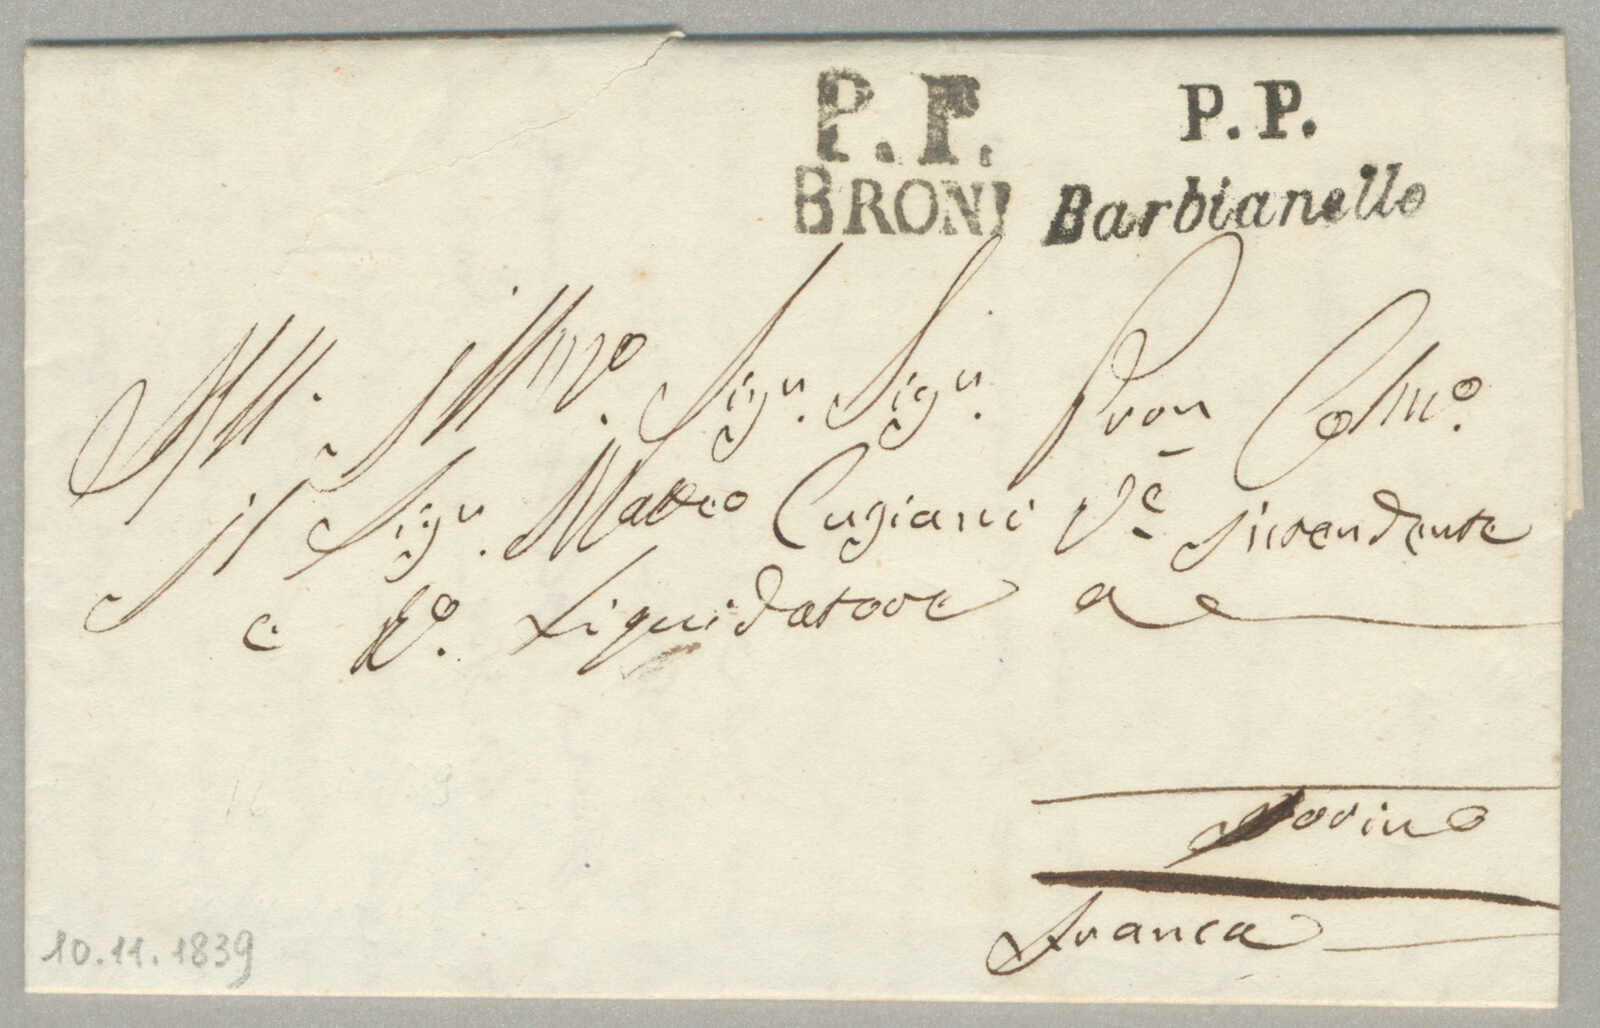 P.P. P.P.
BRONI Barbianello
All. Illmo. Sigr. Sigr. Pron Colmo.
il Sigr. Matteo Cugiani Ve. Intendente
e Ro. Liquidatore a
Torino
Franca
10.11.1839